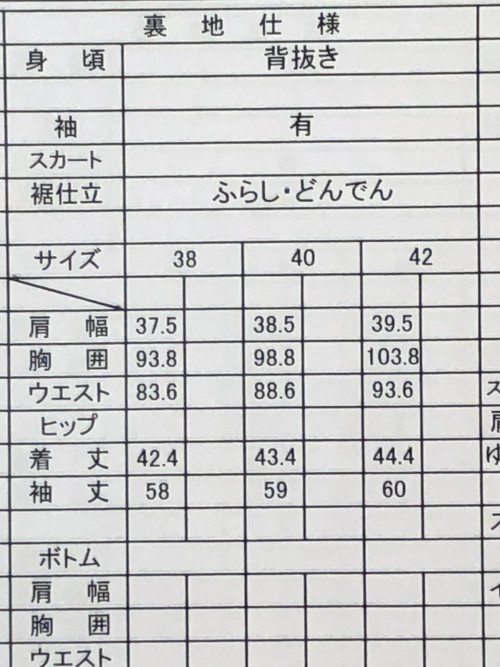 裏地仕様
身頃 背抜き
袖 有
スカート
裾仕立 ふらし・どんでん
サイズ 38 40 42
肩幅 37.5 38.5 39.5
胸囲 93.8 98.8 103.8
ウエスト 83.6 88.6 93.6
ヒップ
着丈 42.4 43.4 44.4
袖丈 58 59 60
ボトム
肩幅
胸囲
ウエスト